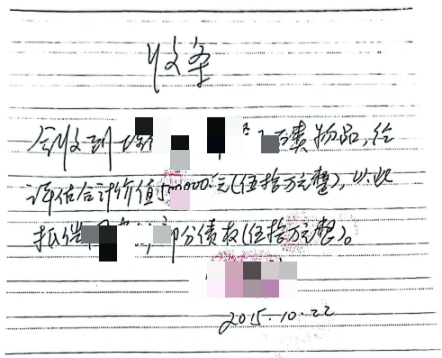 收条
今收到 费物品,经
评估合计价值500000元(伍拾万元整),以此
抵偿 部分债权(伍拾万元整)。
2015.10.22